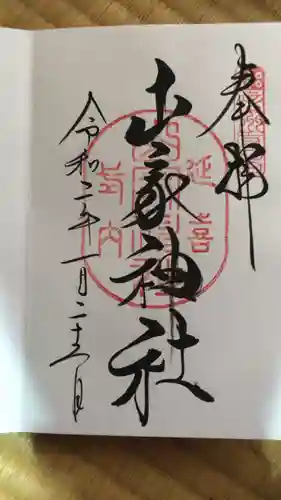 奉拝
山家神社
令和二年一月二十六日
延喜
式内